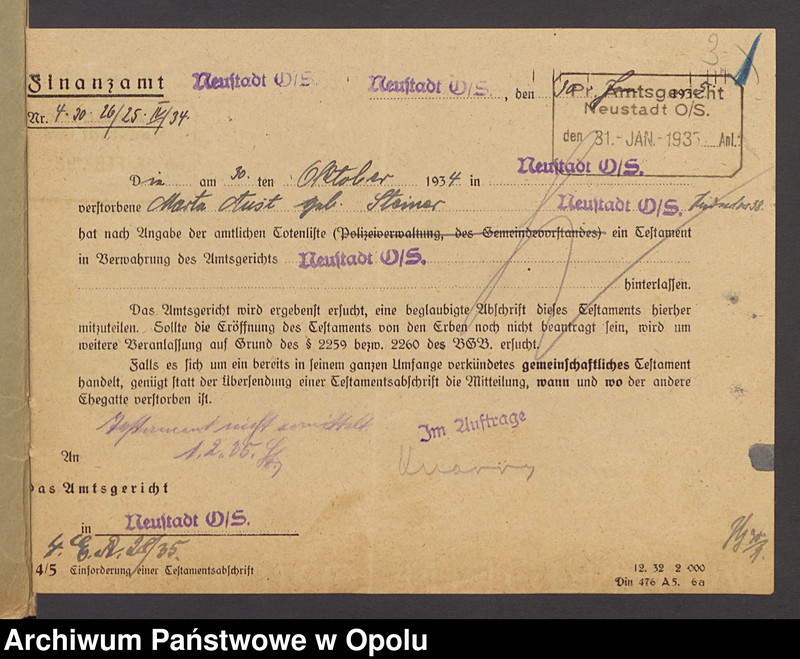 Finanzamt Neustadt O/S. Neustadt O/S., den
Nr. 4-30-26/25 IV/34
Pr. Amtsgericht
Neustadt O/S.
den 31.-JAN.-1935 Anl.:
Die am 30. ten Oktober 1934 in Neustadt O/S.
verstorbene Marta Aust geb. Steiner Neustadt O/S.
hat nach Angabe der amtlichen Totenliste (Polizeiverwaltung, des Gemeindevorstandes) ein Testament
in Verwahrung des Amtsgerichts Neustadt O/S.
hinterlassen.
Das Amtsgericht wird ergebenst ersucht, eine beglaubigte Abschrift dieses Testaments hierher
mitzuteilen. Sollte die Eröffnung des Testaments von den Erben noch nicht beantragt sein, wird um
weitere Veranlassung auf Grund des § 2259 bezw. 2260 des BGB. ersucht.
Falls es sich um ein bereits in seinem ganzen Umfange verkündetes gemeinschaftliches Testament
handelt, genügt statt der Übersendung einer Testamentsabschrift die Mitteilung, wann und wo der andere
Ehegatte verstorben ist.
Testament nicht ermittelt
1.2.35.
Im Auftrage
An
das Amtsgericht
in Neustadt O/S.
4/5 Einforderung einer Testamentsabschrift
12. 32 2 000
Din 476 A 5. 6a
Archiwum Państwowe w Opolu